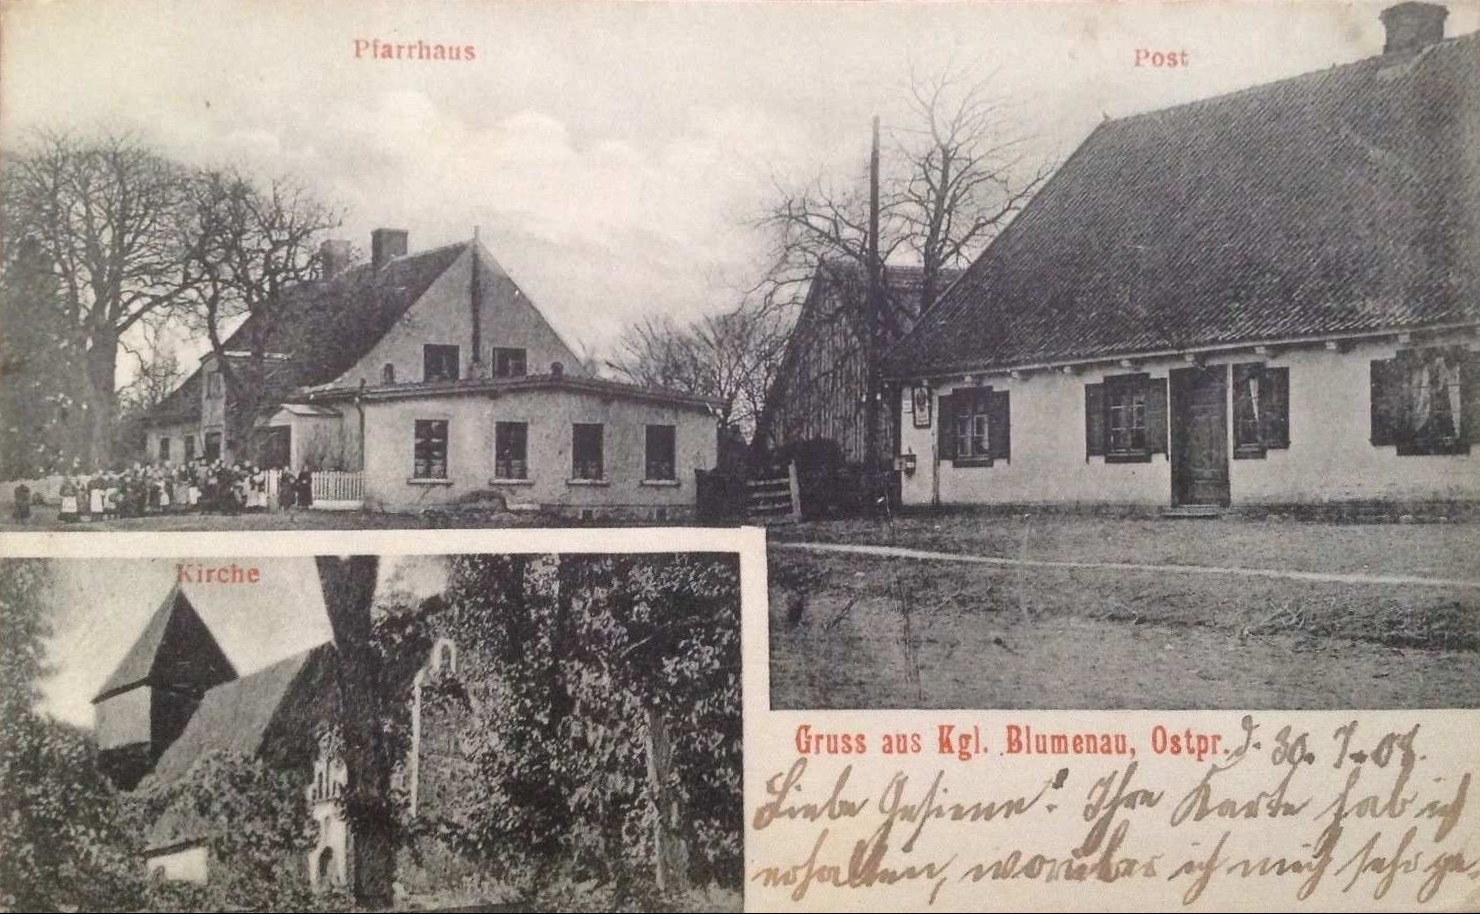 Pfarrhaus
Post
Kirche
Gruss aus Kgl. Blumenau, Ostpr. d. 30. 7. 07.
Liebe Ihre Karte hab ich
erhalten, worüber ich mich sehr ge-